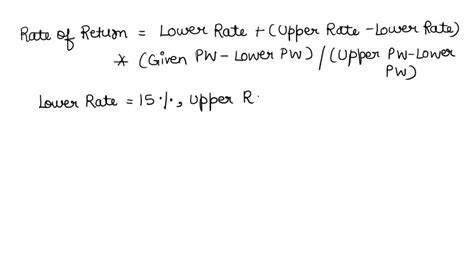 Rate of Return = Lower Rate + (Upper Rate - Lower Rate)
* (Given PW - Lower PW) / (Upper PW - Lower
PW)
Lower Rate = 15%, Upper R